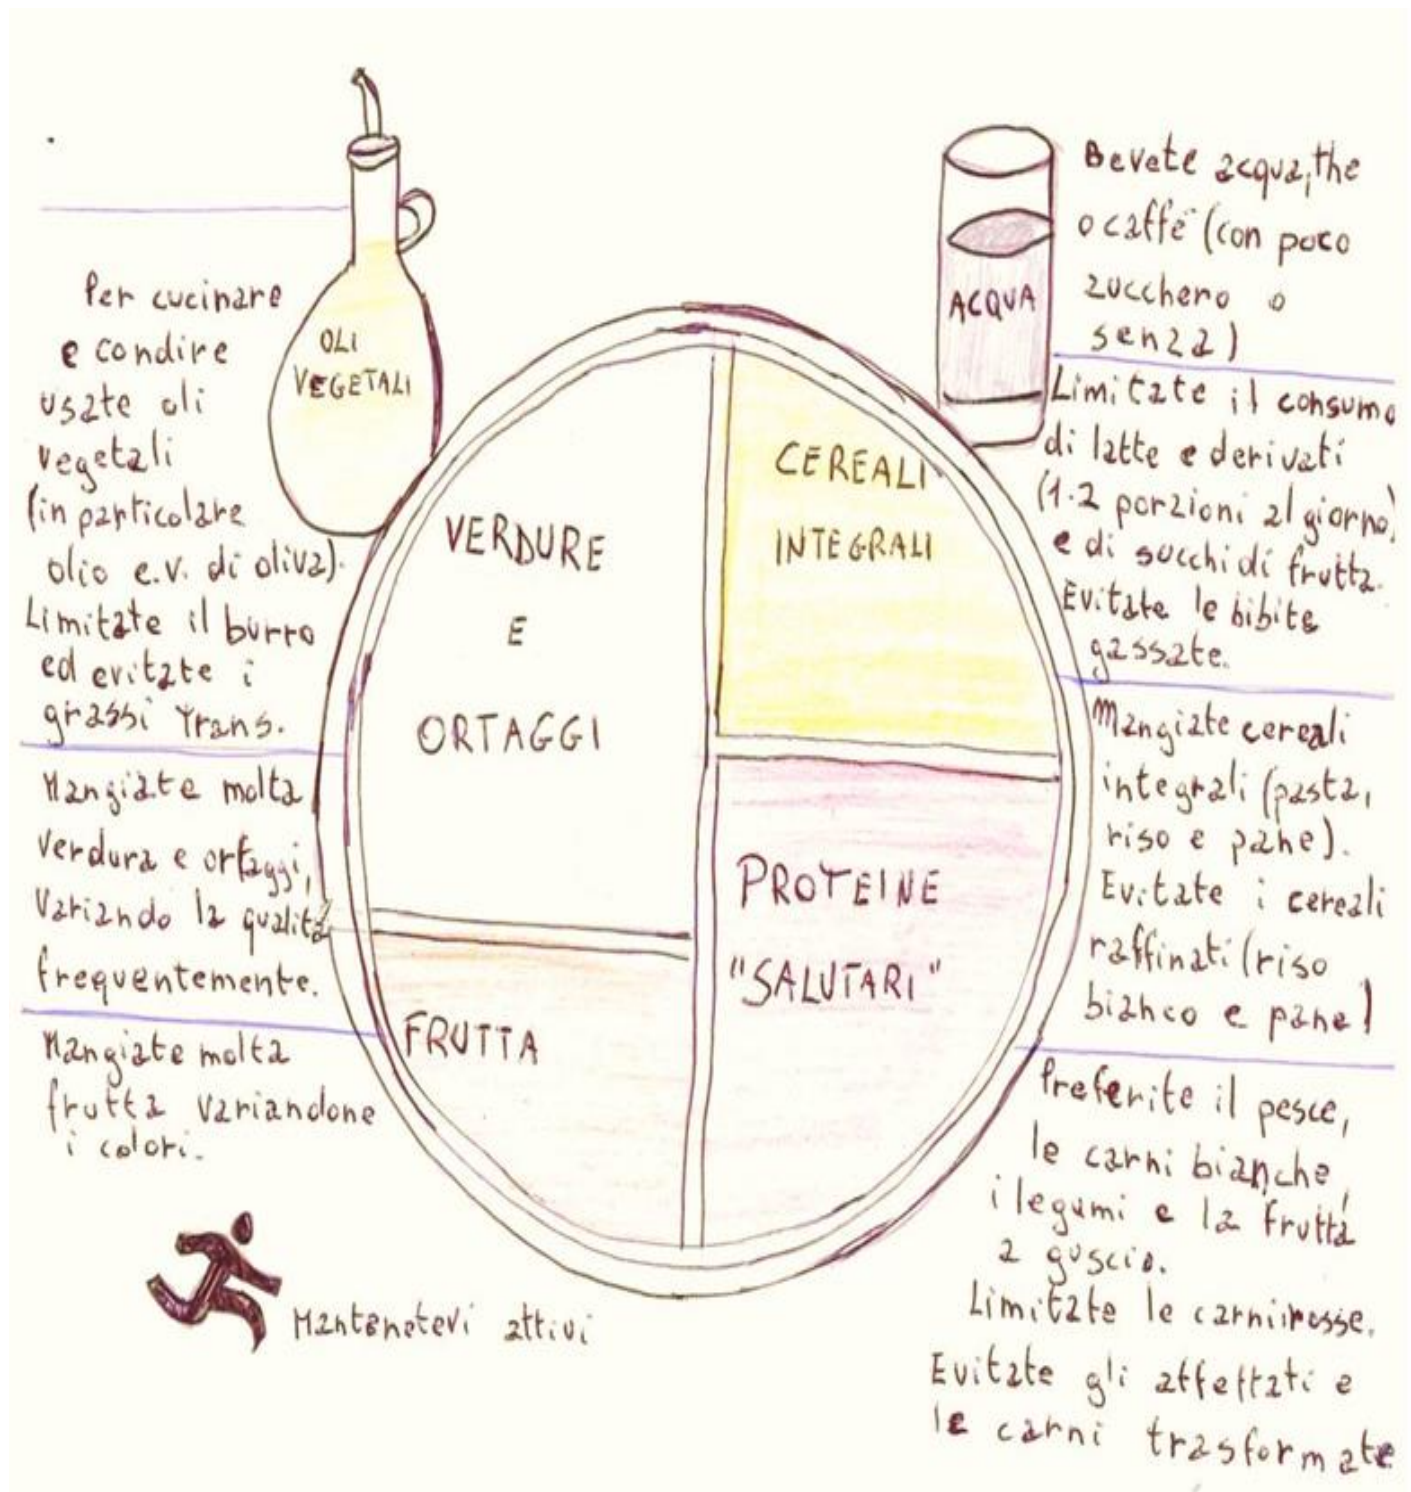 OLI
VEGETALI
Per cucinare
e condire
usate oli
vegetali
(in particolare
olio e.v. di oliva).
Limitate il burro
ed evitate i
grassi Trans.
Mangiate molta
verdura e ortaggi,
variando la qualità
frequentemente.
Mangiate molta
frutta variandone
i colori.
Mantenetevi attivi
VERDURE
E
ORTAGGI
FRUTTA
CEREALI
INTEGRALI
PROTEINE
"SALUTARI"
ACQUA
Bevete acqua, the
o caffè (con poco
zucchero o
senza)
Limitate il consumo
di latte e derivati
(1-2 porzioni al giorno)
e di succhi di frutta.
Evitate le bibite
gassate.
Mangiate cereali
integrali (pasta,
riso e pane).
Evitate i cereali
raffinati (riso
bianco e pane)
Preferite il pesce,
le carni bianche,
i legumi e la frutta
a guscio.
Limitate le carni rosse.
Evitate gli affettati e
le carni trasformate